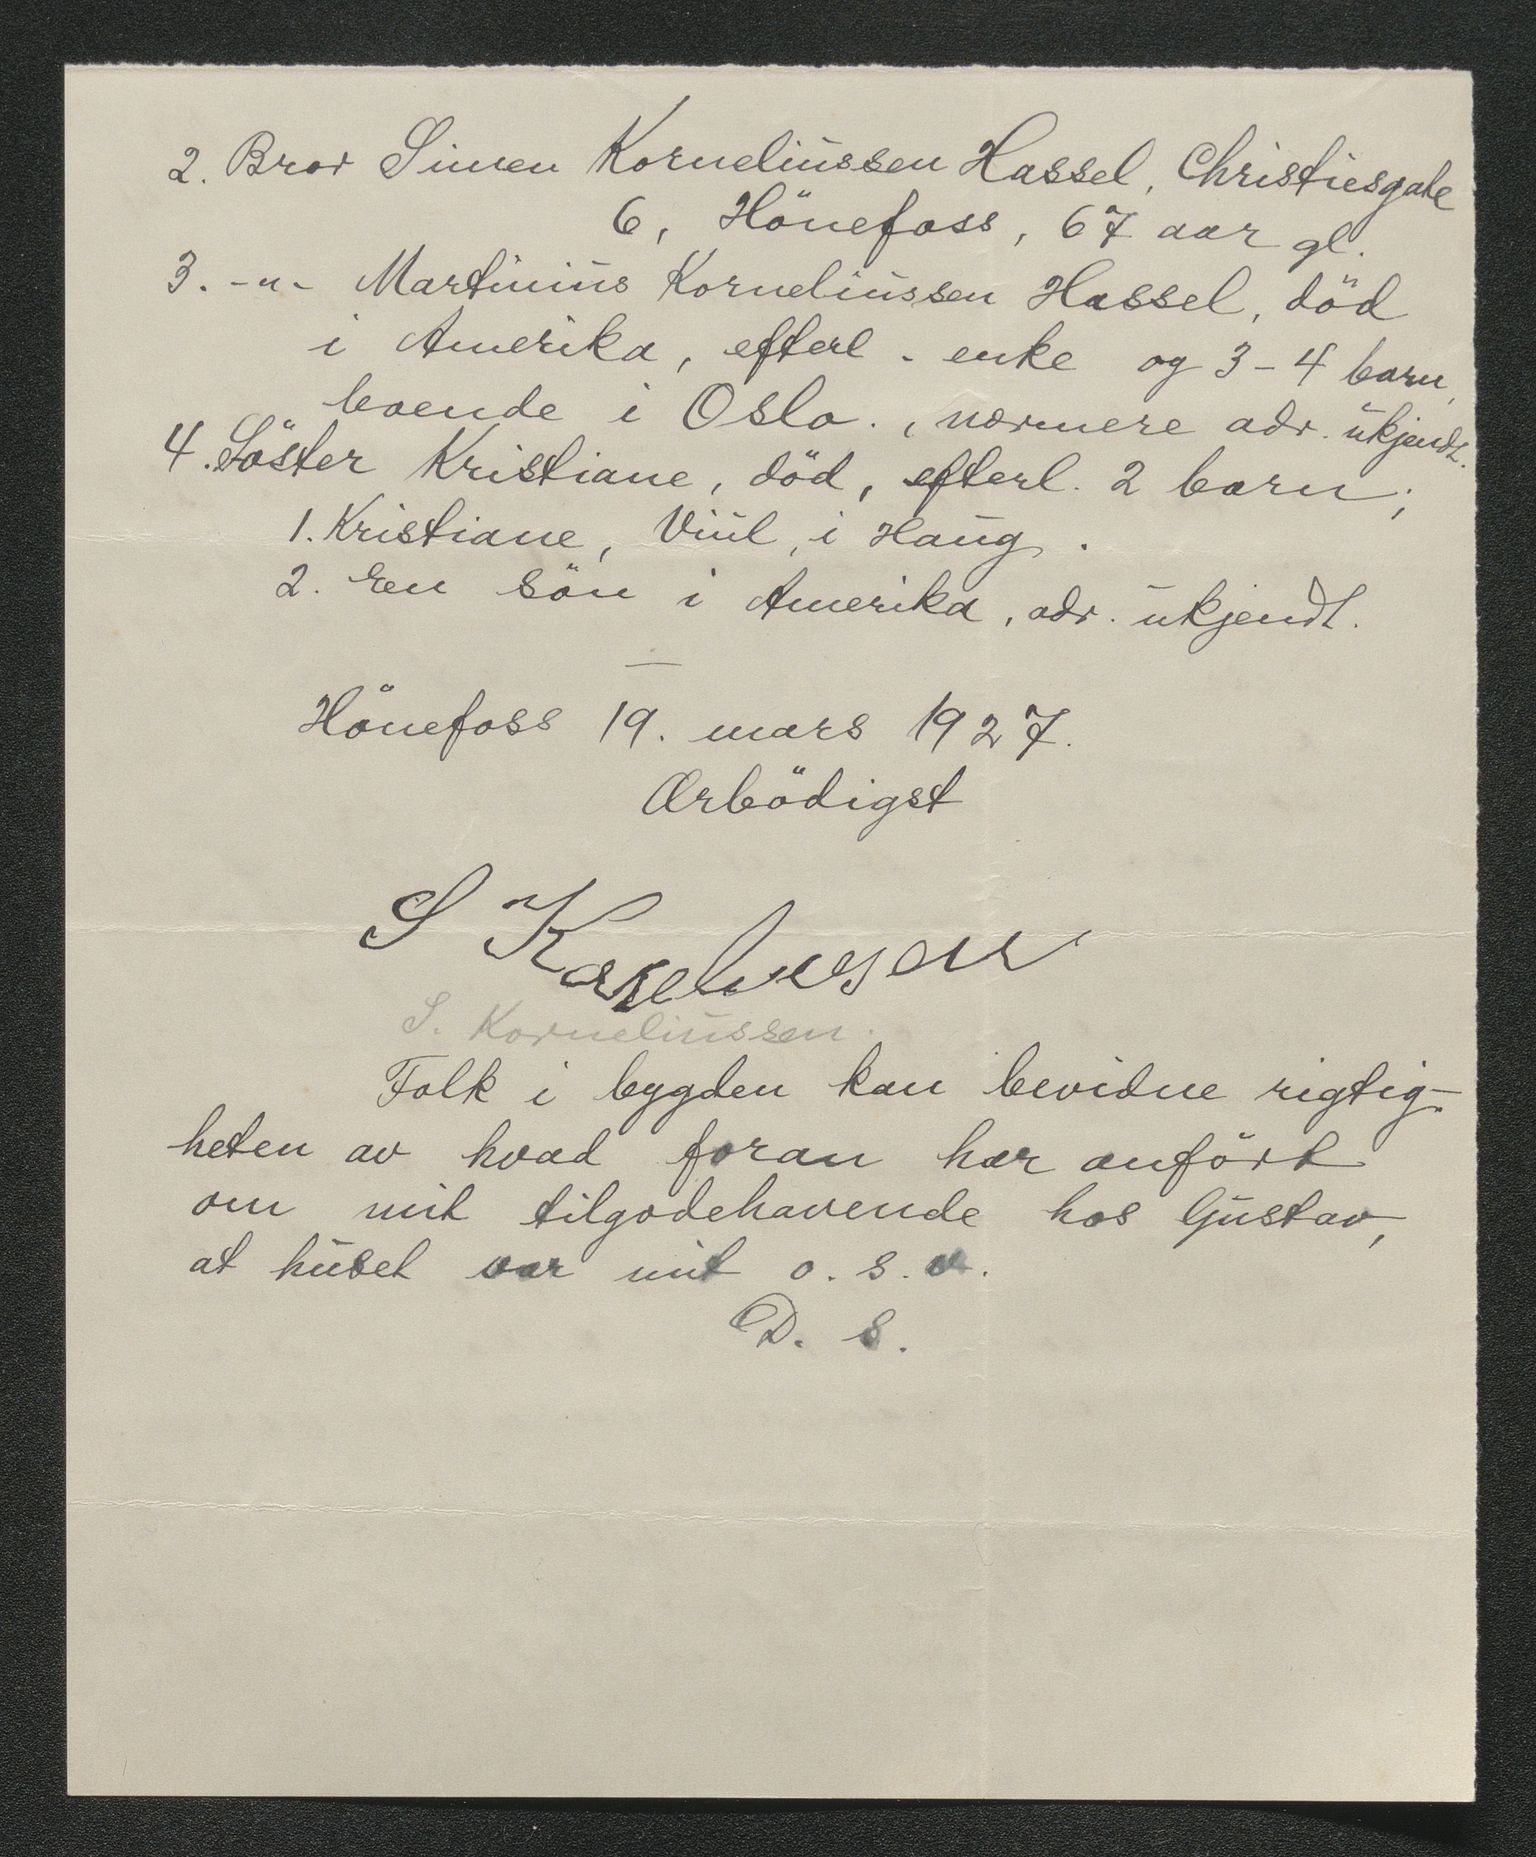 2. Bror Simen Korneliussen Hassel, Christiesgate
6, Hönefoss, 67 aar gl.
3. -"- Martinius Korneliussen Hassel, död
i Amerika, efterl. enke og 3-4 barn,
boende i Oslo., nærmere adr. ukjendt.
4. Söster Kristiane, död, efterl. 2 barn;
1. Kristiane, Viul, i Haug.
2. En sön i Amerika, adr. ukjendt.
Hönefoss 19. mars 1927.
Ærbödigst
S Korneliussen
S. Korneliussen.
Folk i bygden kan bevidne rigtig-
heten av hvad foran har anfört
om mit tilgodehavende hos Gustav,
at huset var mit o. s. v.
D. S.